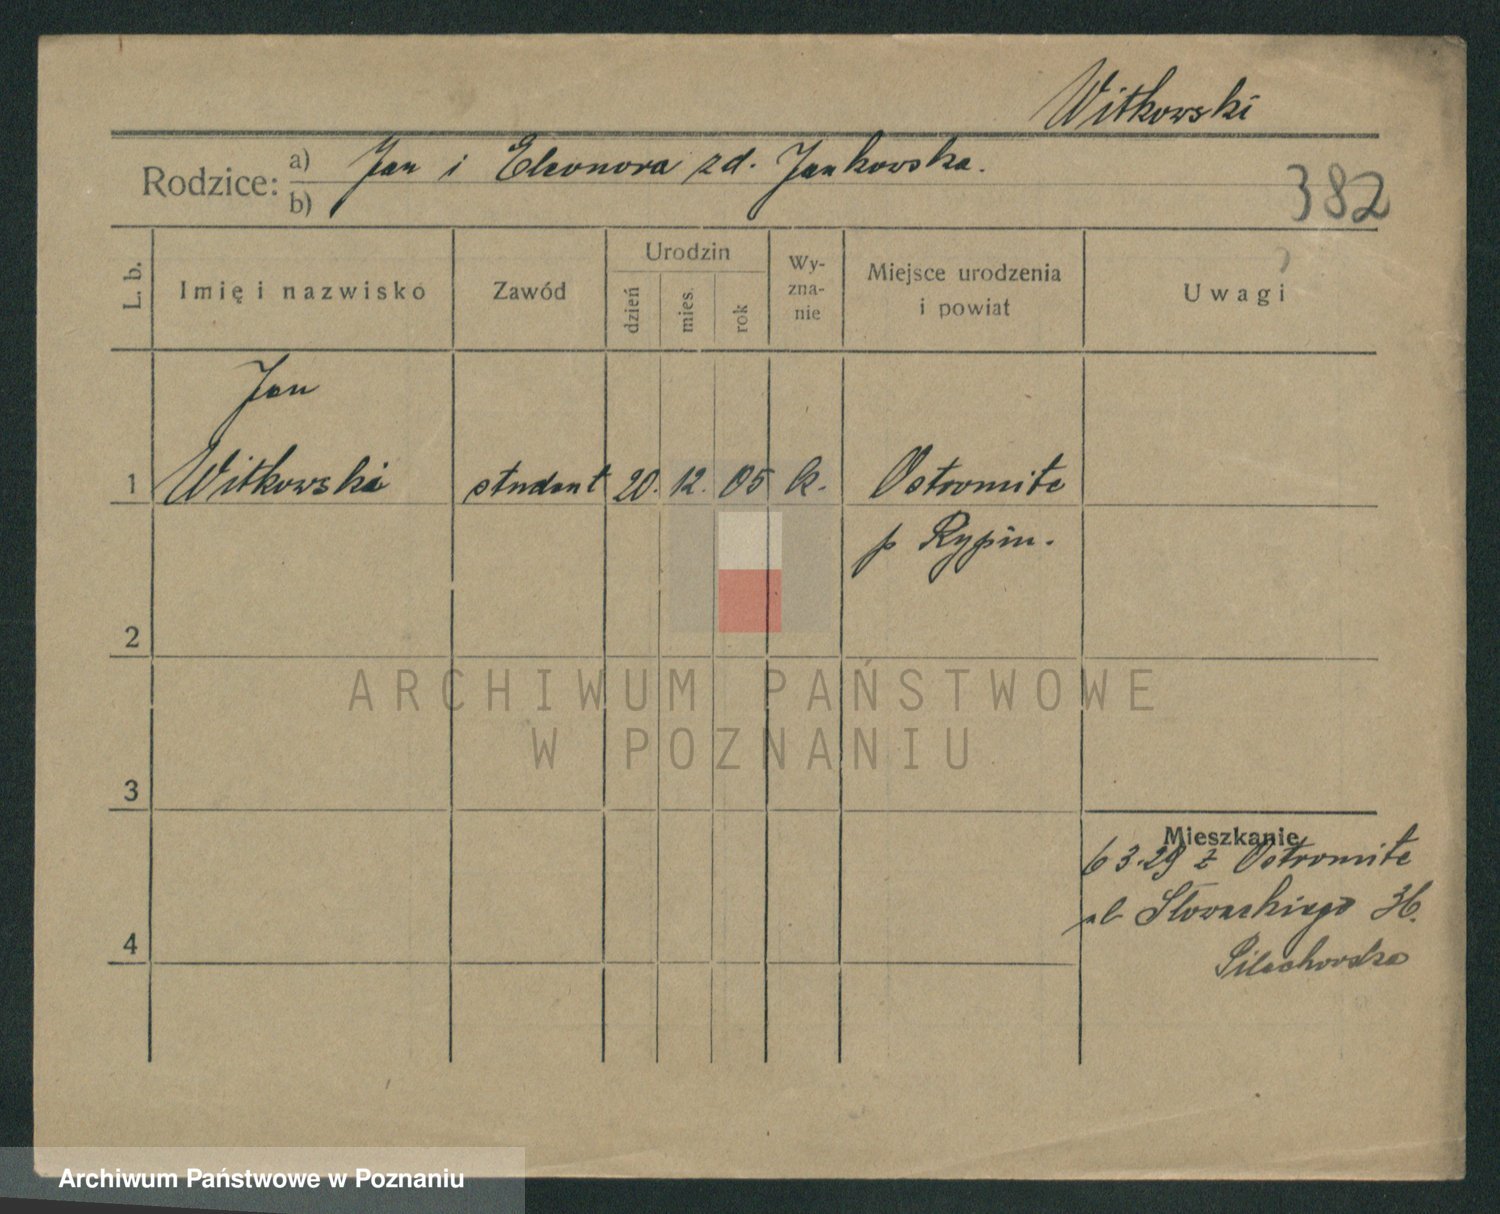 Witkowski
Rodzice: a) Jan i Eleonora zd. Jankowska.
b)
382
L. b.
Imię i nazwisko
Zawód
Urodzin
dzień
mies.
rok
Wy-
zna-
nie
Miejsce urodzenia
i powiat
Uwagi
Jan
1 Witkowski student 20. 12. 05 k. Ostromite
p Rypin.
2
ARCHIWUM PAŃSTWOWE
W POZNANIU
3
Mieszkanie
6 3.29 z Ostromite
ul Słowackiego 36.
Pilachowska
4
Archiwum Państwowe w Poznaniu